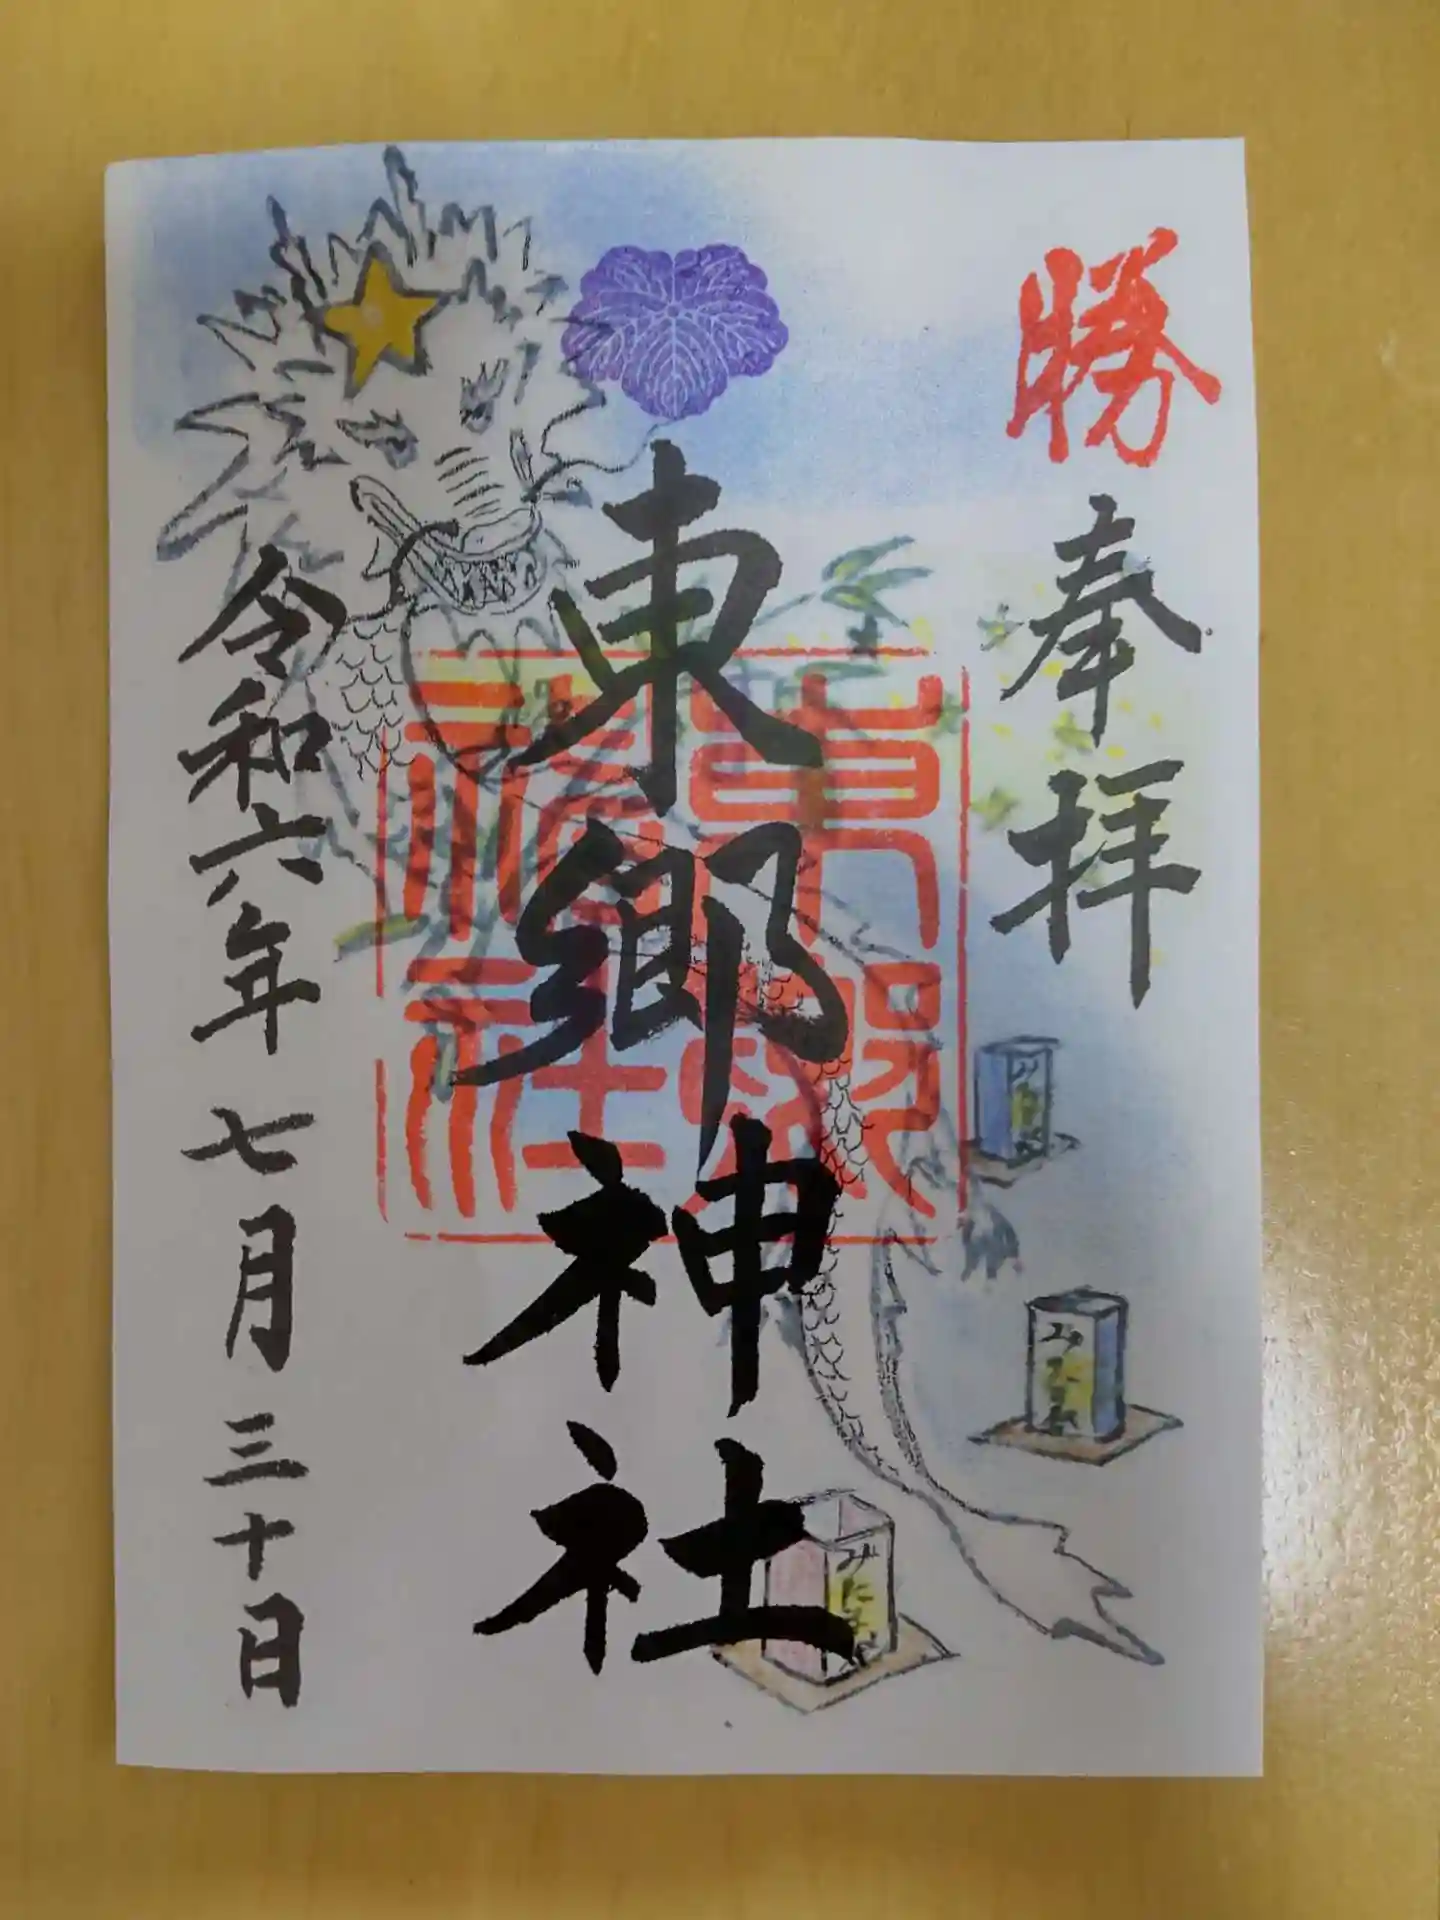 勝
奉拝
東郷神社
東郷神社
令和六年七月三十日
みたま